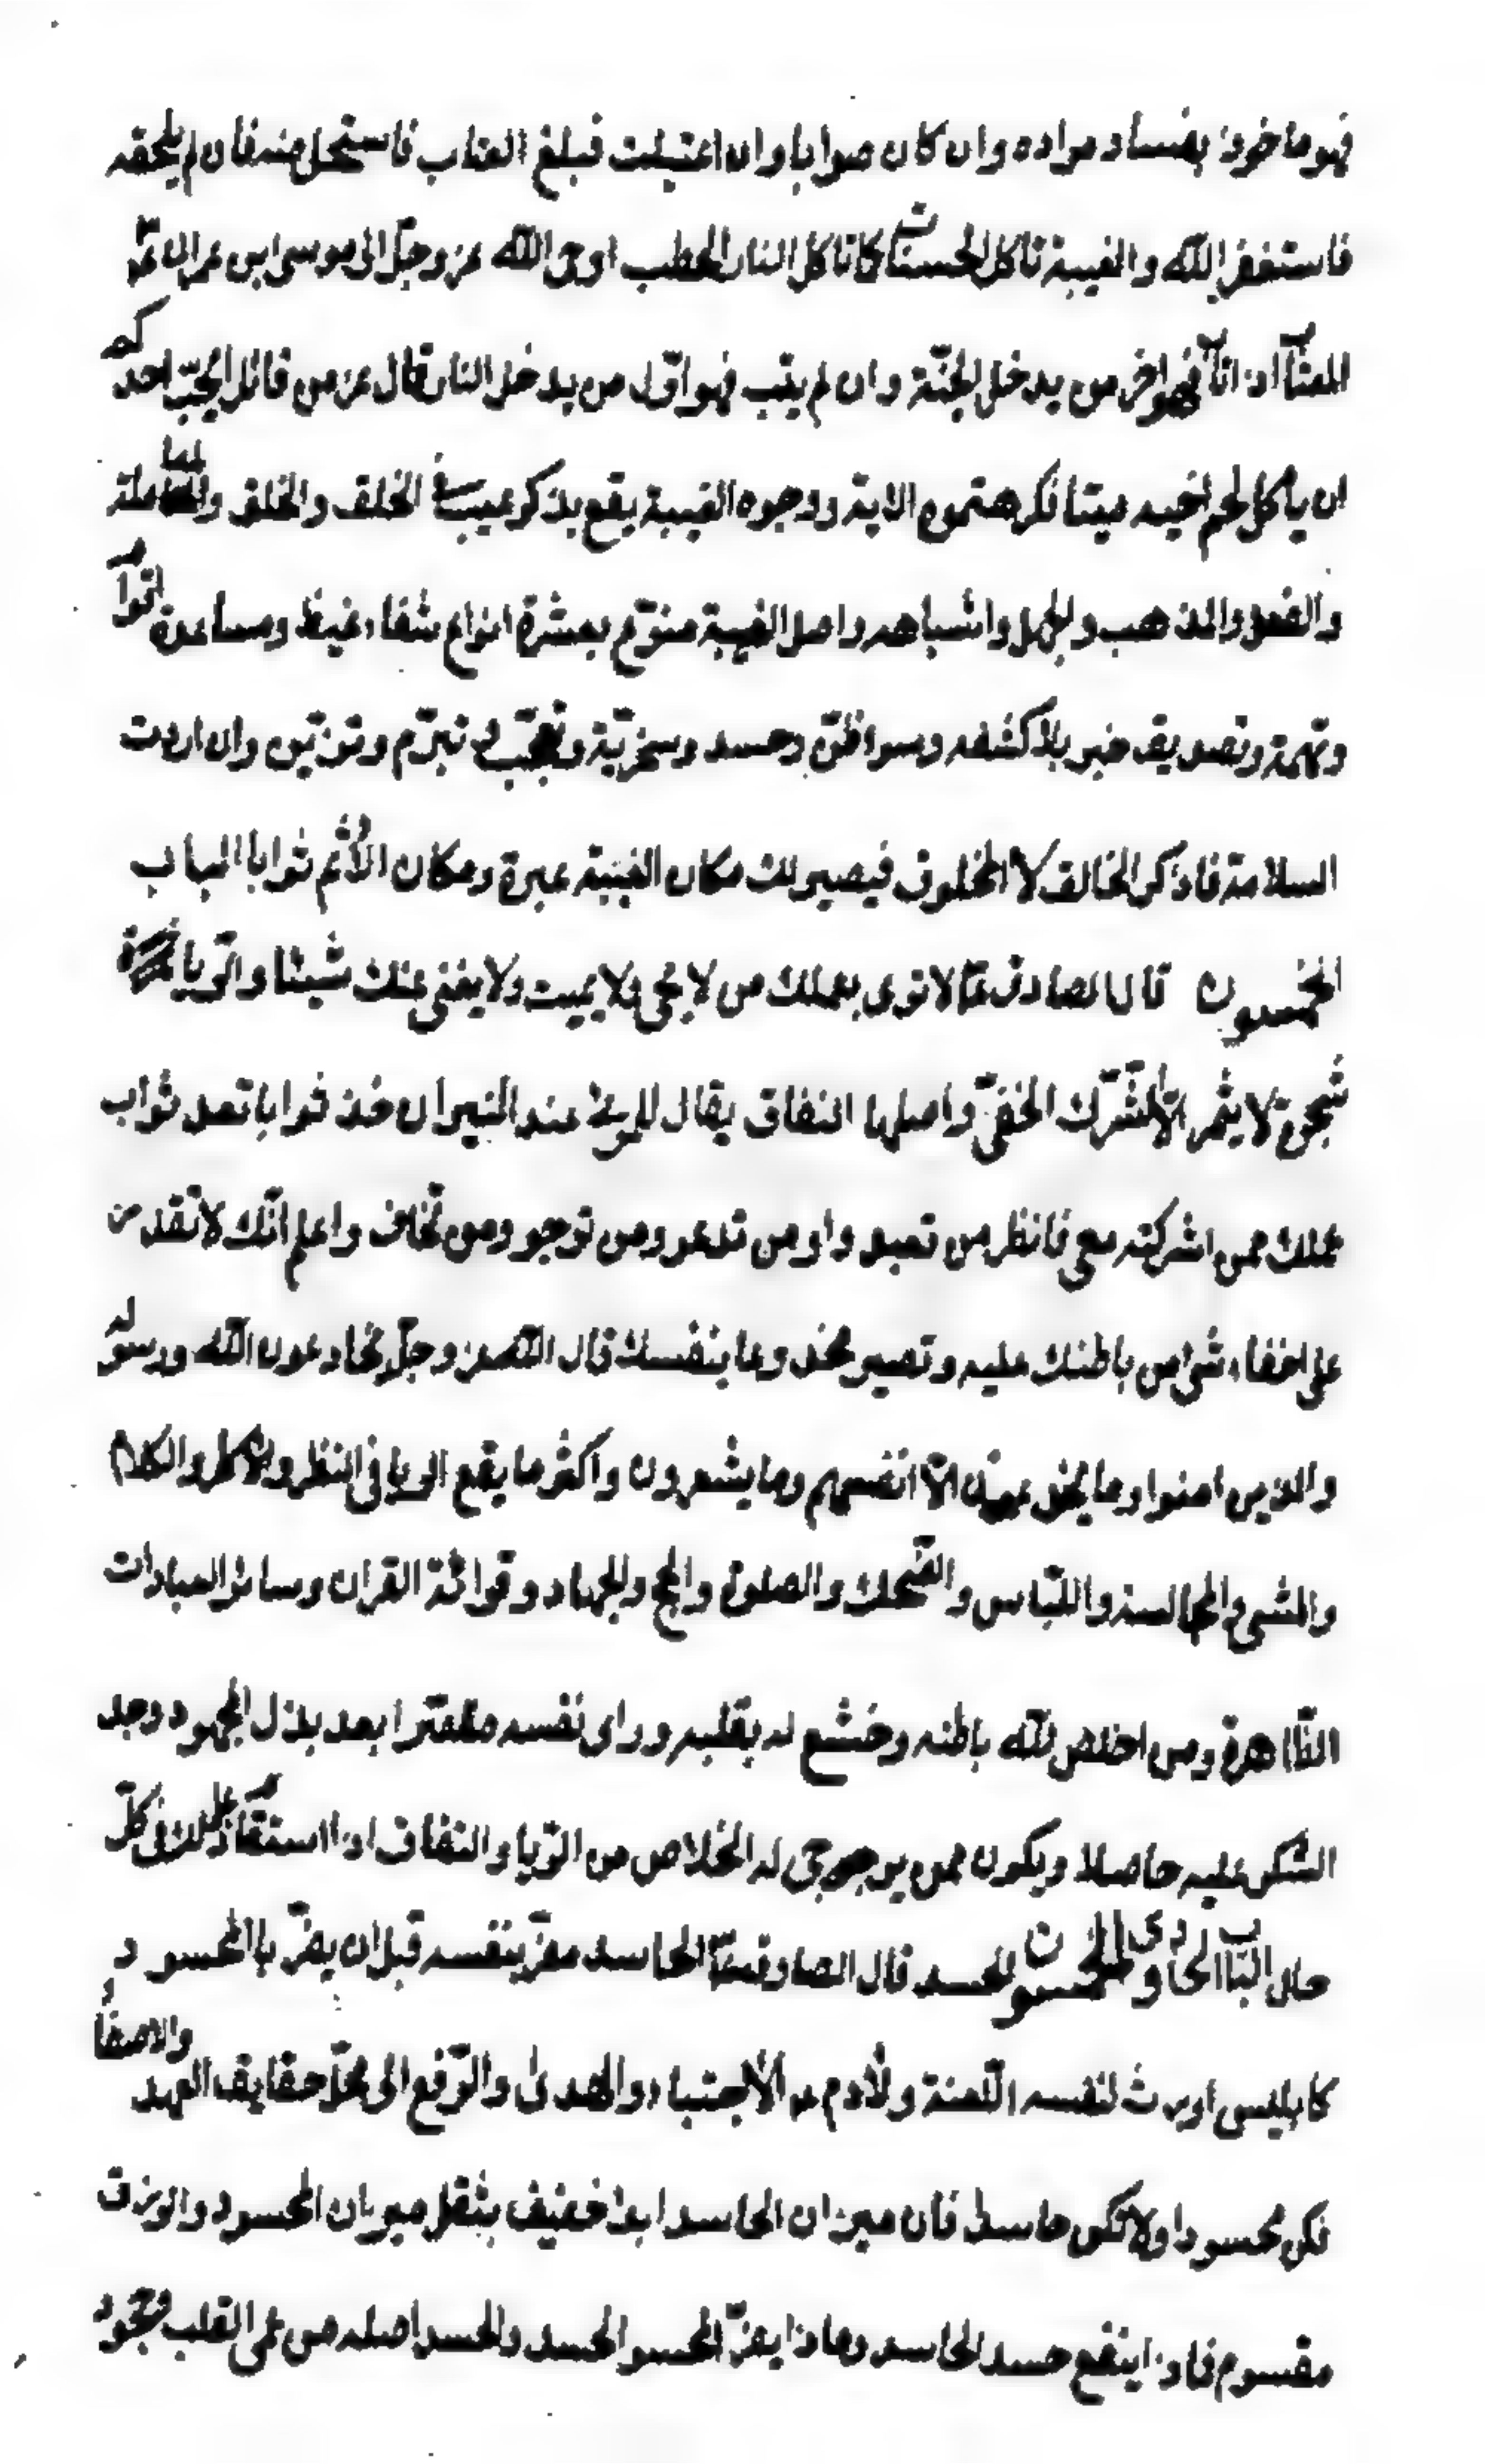 فهو ماخوذ بفساد مراده وان كان صوابا وان اغتبت فبلغ المغتاب فاستحل منه فان لم يلحقه
فاستغفر الله والغيبة تاكل الحسنات كما تاكل النار الحطب اوحى الله عز وجل الى موسى ابن عمران ع
المغتاب اذ اتاب فهو اخر من يدخل الجنّة وان لم يتب فهو اوّل من يدخل النار قال عز من قائل ايحبّ احدكم
ان ياكل لحم اخيه ميتا فكرهتموه الاية ووجوه الغيبة يقع بذكر عيب فى الخلق والخلق والمعاملة
والفعل والمذهب والجهل واشباهه واصل الغيبة متنوّع بعشرة انواع شفاء غيظ ومساعدة قوم
وتهمة وتصديق خبر بلا كشفه وسوء ظنّ وحسد وسخريّة وتعجّب و تبرّم وتزيّن وان اردت
السلامة فاذكر الخالق لا المخلوق فيصير لك مكان الغيبة عبرة ومكان الأثم ثوابا الباب
الخمسون قال الصادق ع لا ترى بعملك من لا يحي ولا يميت ولا يغنى عنك شيئا والرّيا
شجرة لا يثمر الّا الشرك الخفىّ واصلها النفاق يقال للمرائى عند الميزان خذ ثوابا تعد ثواب
عملك ممن اشركته معى فانظر من تعبد و من تدعو ومن ترجو ومن تخاف واعلم انّك لا تقدر
على اخفاء شئ من باطنك عليه وتصير مخدوعا بنفسك قال الله عز وجلّ يخادعون الله ورسوله
والذين امنوا وما يخدعون الّا انفسهم وما يشعرون واكثر ما يقع الريا فى النظر والاكل والكلام
والمشى والمجالسة واللّباس والضّحك والصلوة والحج والجهاد وقرائة القران وسائر العبادات
الظّاهرة ومن اخلص لله باطنه وخشع له بقلبه وراى نفسه مقصّرا بعد بذل المجهود وجد
الشكر عليه حاصلا ويكون ممن يرجى له الخلاص من الرّيا والنفاق اذا استقام على ذلك فى كلّ
حال الباب الحادى والخمسون الحسد قال الصادق ع الحاسد مضرّ بنفسه قبل ان يضرّ بالمحسود
كابليس اورث لنفسه اللّعنة ولأدم ع الأجتباء والهدى والرّفع الى محلّ حقايق العهد والاصفاء
فكن محسودا ولا تكن حاسدا فان ميزان الحاسد ابدا خفيف بثقل ميزان المحسود والرزق
مقسوم فماذا ينفع حسد الحاسد وماذا يضرّ المحسود الحسد والحسد اصله من عمى القلب وجحود